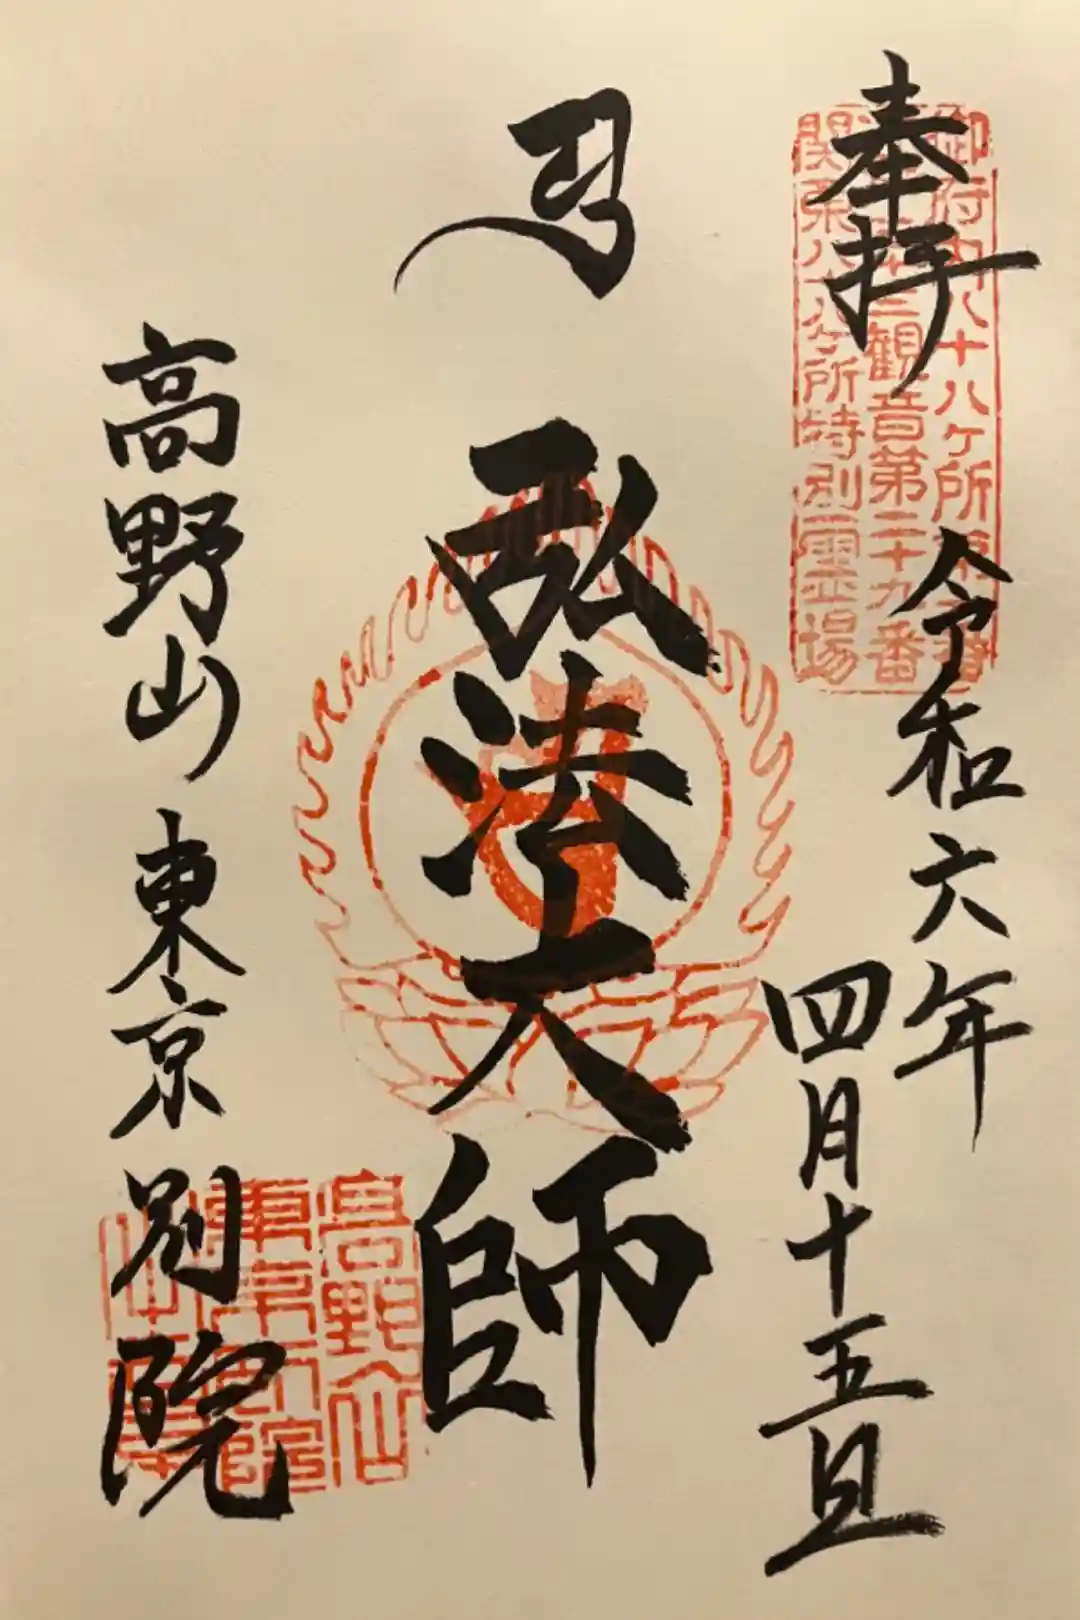 奉拝
令和六年
四月十五日
弘法大師
高野山東京別院
御府内八十八ヶ所第一番
三観音第二十九番
関東八十八ヶ所特別霊場
高野山